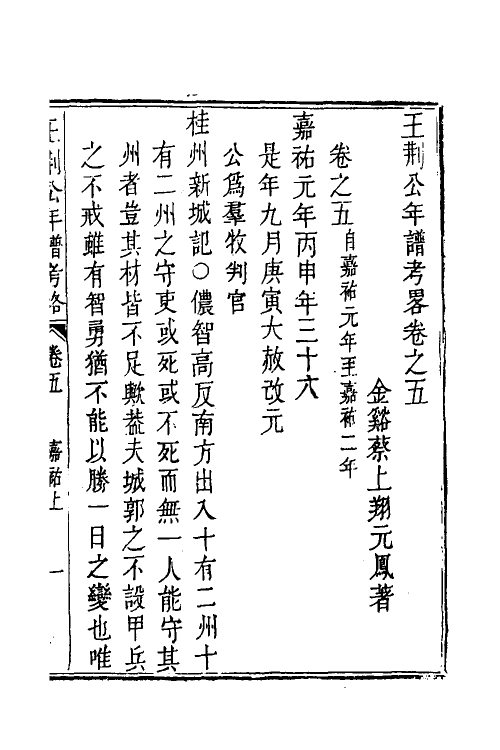 王荆公年譜考畧卷之五
金谿蔡上翔元鳳著
卷之五自嘉祐元年至嘉祐二年
嘉祐元年丙申年三十六
是年九月庚寅大赦改元
公爲羣牧判官
桂州新城記〇儂智高反南方出入十有二州十
有二州之守吏或死或不死而無一人能守其
州者豈其材皆不足歟葢夫城郭之不設甲兵
之不戒雖有智勇猶不能以勝一日之變也唯
王荆公年譜考畧 卷五 嘉祐上 一